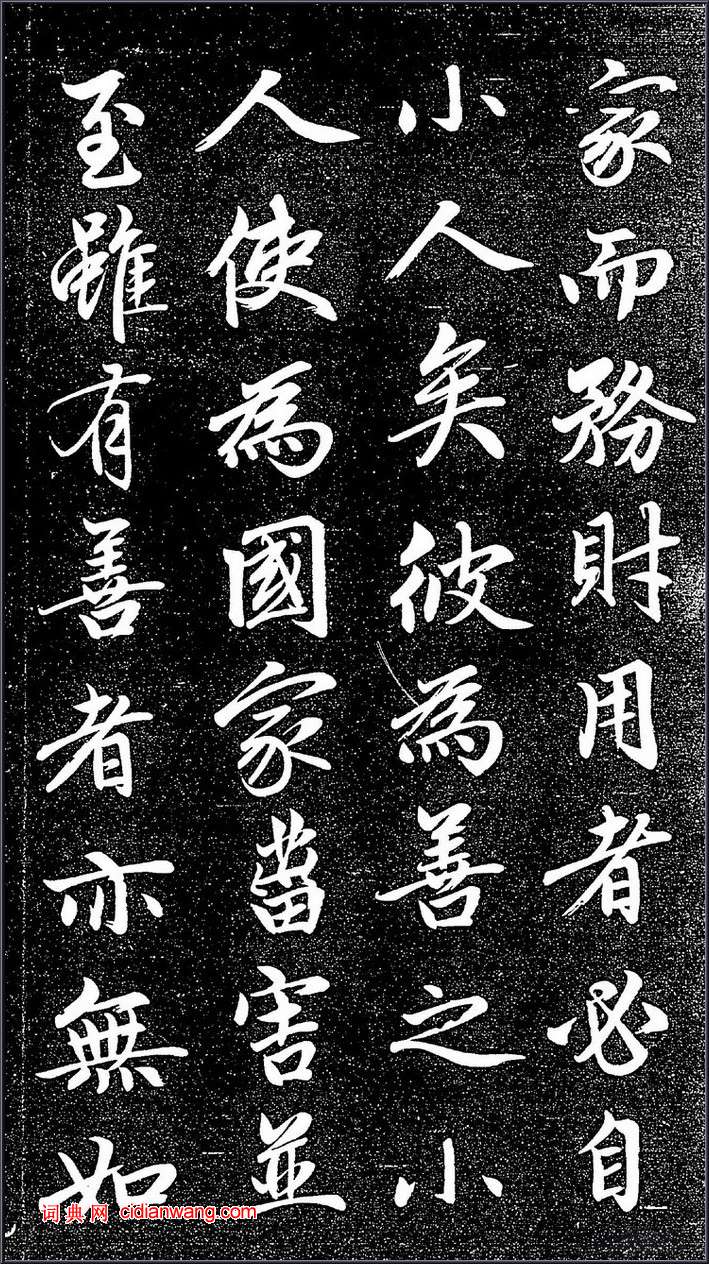 家而務財用者必自
小人矣彼為善之小
人使為國家菑害並
至雖有善者亦無如
词典网 cidianwang.com